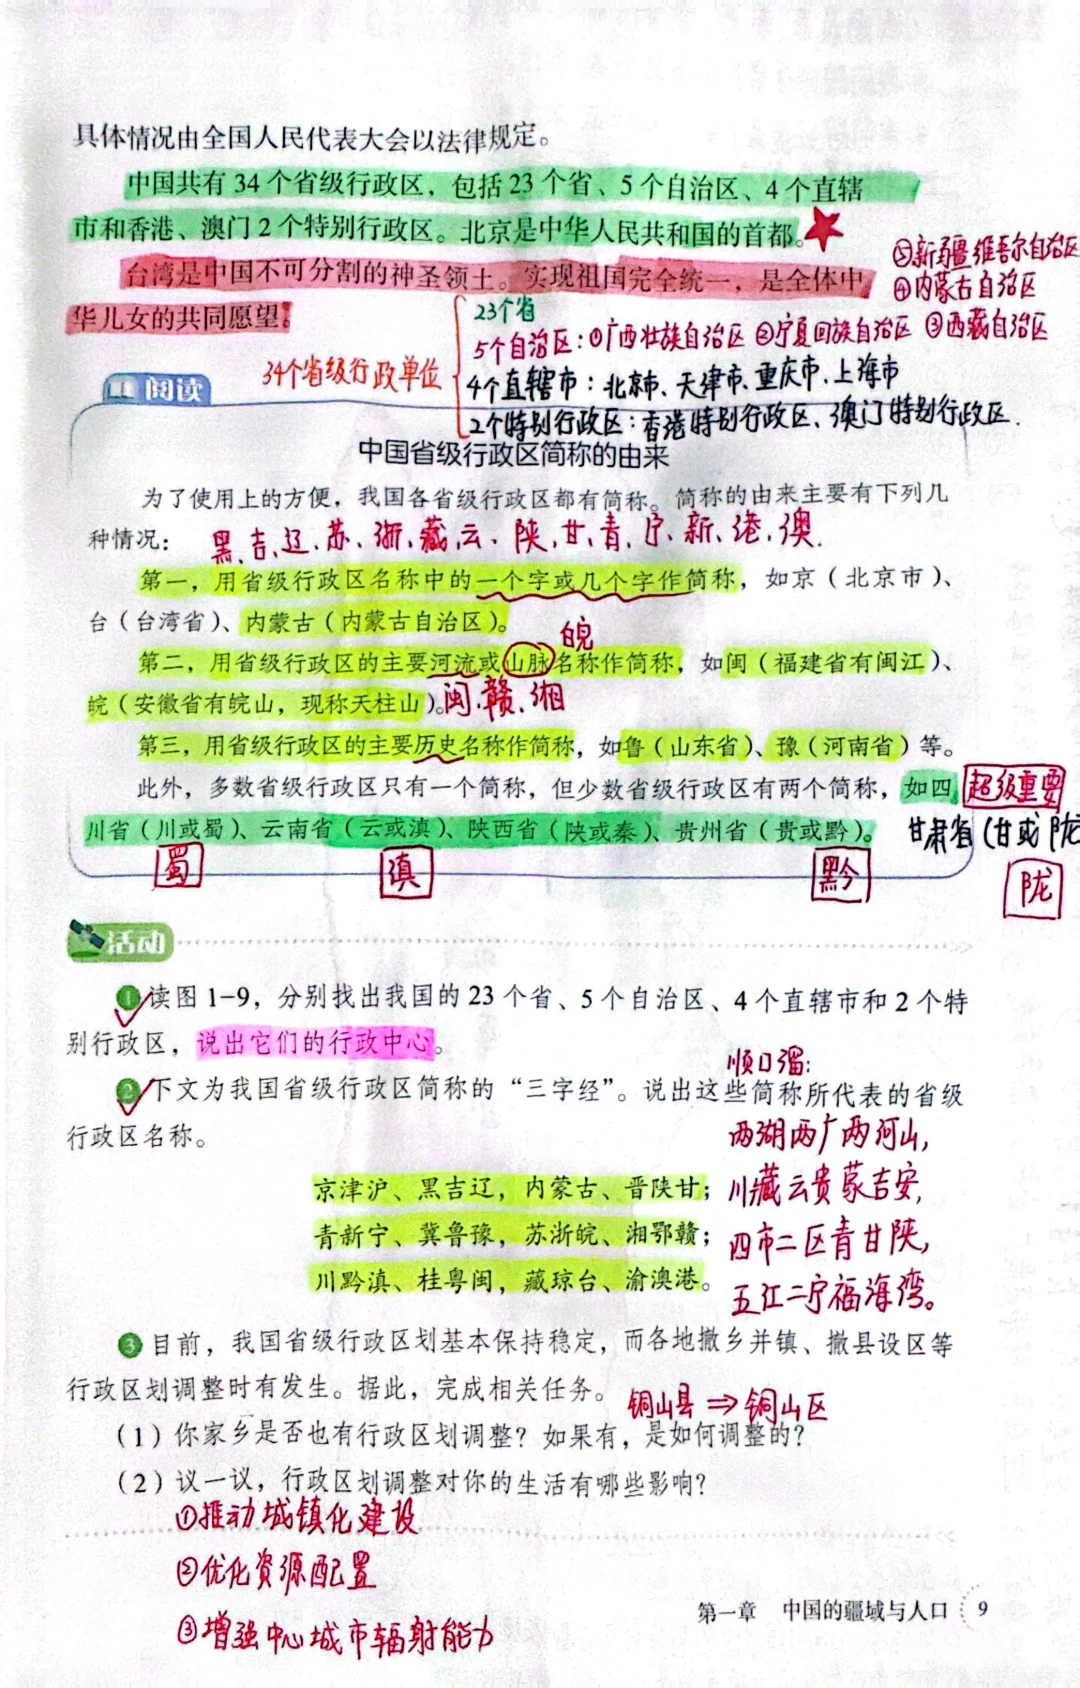 具体情况由全国人民代表大会以法律规定。
中国共有 34 个省级行政区，包括 23 个省、5 个自治区、4 个直辖
市和香港、澳门 2 个特别行政区。北京是中华人民共和国的首都。
台湾是中国不可分割的神圣领土。实现祖国完全统一，是全体中
华儿女的共同愿望。
34个省级行政单位
23个省
5个自治区：①广西壮族自治区 ②宁夏回族自治区 ③西藏自治区
④内蒙古自治区
⑤新疆维吾尔自治区
4个直辖市：北京市、天津市、重庆市、上海市
2个特别行政区：香港特别行政区、澳门特别行政区.
阅读
中国省级行政区简称的由来
为了使用上的方便，我国各省级行政区都有简称。简称的由来主要有下列几
种情况：
黑、吉、辽、苏、浙、藏、云、陕、甘、青、宁、新、港、澳.
第一，用省级行政区名称中的一个字或几个字作简称，如京（北京市）、
台（台湾省）、内蒙古（内蒙古自治区）。
皖
第二，用省级行政区的主要河流或山脉名称作简称，如闽（福建省有闽江）、
皖（安徽省有皖山，现称天柱山）。
闽、赣、湘
第三，用省级行政区的主要历史名称作简称，如鲁（山东省）、豫（河南省）等。
此外，多数省级行政区只有一个简称，但少数省级行政区有两个简称，如四
超级重要
川省（川或蜀）、云南省（云或滇）、陕西省（陕或秦）、贵州省（贵或黔）。
甘肃省（甘或陇
蜀
滇
黔
陇
活动
1 读图 1-9，分别找出我国的 23 个省、5 个自治区、4 个直辖市和 2 个特
别行政区，说出它们的行政中心。
2 下文为我国省级行政区简称的“三字经”。说出这些简称所代表的省级
行政区名称。
京津沪、黑吉辽，内蒙古、晋陕甘；
青新宁、冀鲁豫，苏浙皖、湘鄂赣；
川黔滇、桂粤闽，藏琼台、渝澳港。
顺口溜：
两湖两广两河山，
川藏云贵蒙吉安，
四市二区青甘陕，
五江二宁福海湾。
3 目前，我国省级行政区划基本保持稳定，而各地撤乡并镇、撤县设区等
行政区划调整时有发生。据此，完成相关任务。
铜山县⇒铜山区
（1）你家乡是否也有行政区划调整？如果有，是如何调整的？
（2）议一议，行政区划调整对你的生活有哪些影响？
①推动城镇化建设
②优化资源配置
③增强中心城市辐射能力
第一章 中国的疆域与人口 9